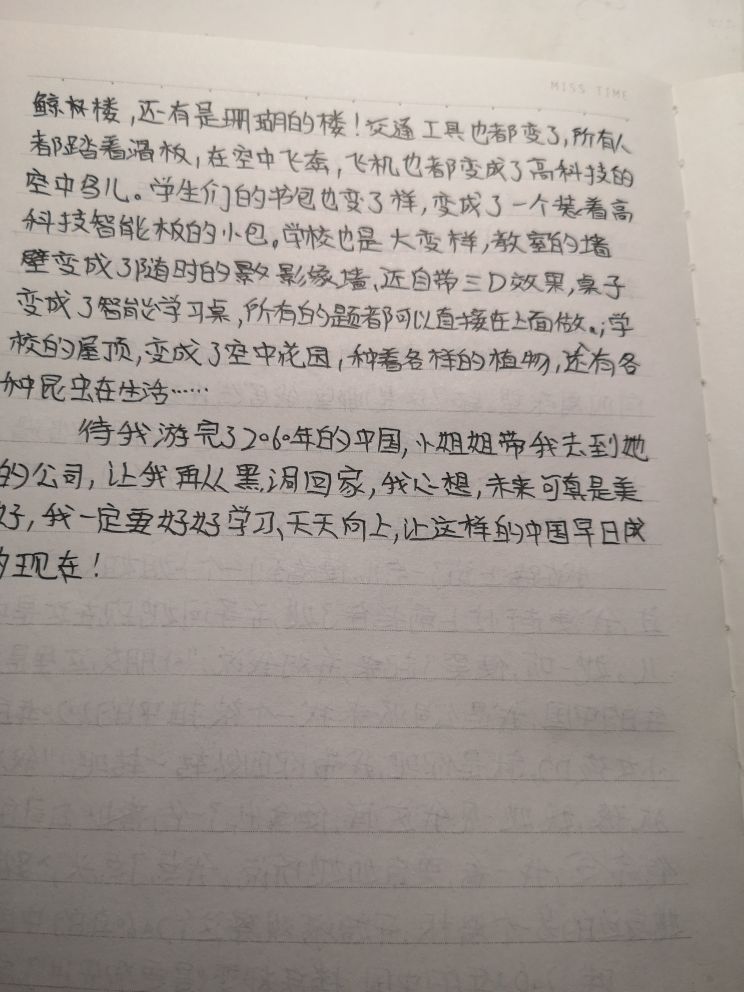 MISS TIME
鲸杯楼，还有是珊瑚的楼！交通工具也都变了，所有人
都踏着滑板，在空中飞奔，飞机也都变成了高科技的
空中鸟儿。学生们的书包也变了样，变成了一个装着高
科技智能板的小包。学校也是大变样，教室的墙
壁变成了随时的影像墙、还自带三D效果，桌子
变成了智能学习桌，所有的题都可以直接在上面做。；学
校的屋顶，变成了空中花园，种着各样的植物，还有各
种昆虫在生活……
待我游完了2060年的中国，小姐姐带我去到她
的公司，让我再从黑洞回家，我心想，未来可真是美
好，我一定要好好学习、天天向上，让这样的中国早日成
现在！